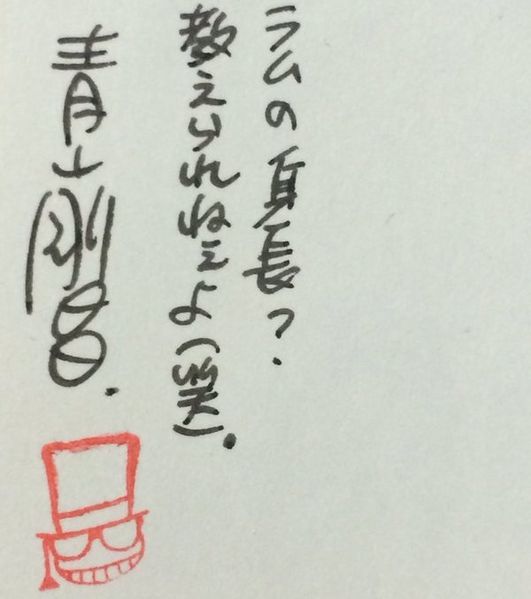 ラムの身長?
教えられねぇよ(笑).
青山剛昌.